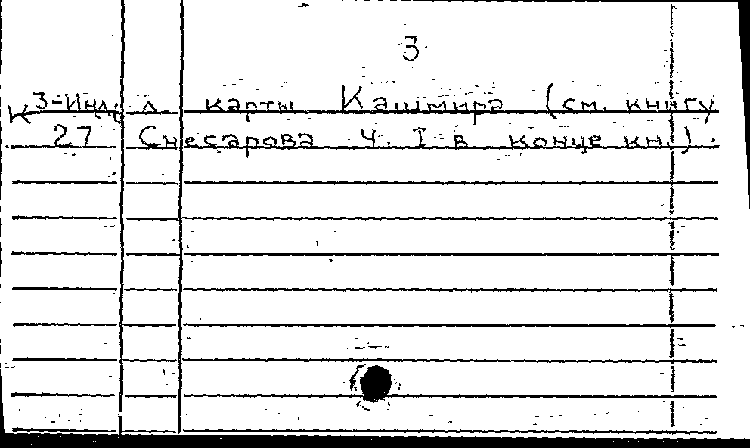 3
К 3-Инд. л. карты Кашмира (см. книгу
27 Снесарова ч. I в конце кн.).